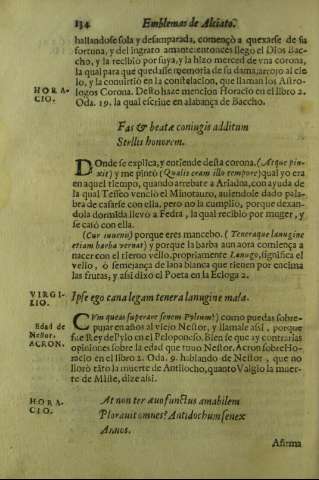 134 Emblemas de Alciato.
hallandose sola y desamparada, començò a quexarse de su
fortuna, y del ingrato amante: entonces llego el Dios Bac-
cho, y la recibio por suya, y la hizo merced de vna corona,
la qual para que quedasse memoria de su dama, arrojo al cie
lo, y la conuirtio en la constelacion, que llaman los Astro-
HORA- logos Corona. Desto haze mencion Horacio en el libro 2.
CIO. Oda. 19. la qual escriue en alabança de Baccho.
Fas & beatæ coniugis additum
Stellis honorem.
DOnde se explica, y entiende desta corona. (Atque pin-
xit) y me pintò (Qualis eram illo tempore) qual yo era
en aquel tiempo, quando arrebate a Ariadna, con ayuda de
la qual Teseo vencio el Minotauro, auiendole dado pala-
bra de casarse con ella, pero no la cumplio, porque dexan-
dola dormida lleuò a Fedra, la qual recibio por muger, y
se casò con ella.
(Cur iuuenis) porque eres mancebo. (Teneraque lanugine
etiam barba vernat) y porque la barba aun aora comiença a
nacer con el tierno vello, propriamente Lanugo, significa el
vello, ò semejança de lana blanca que tienen por encima
las frutas, y assi dixo el Poeta en la Ecloga 2.
VIRGI-
LIO. Ipse ego cana legam tenera lanugine mala.
CVm queas superare senem Pylium?) como puedas sobre-
Edad de pujar en años al viejo Nestor, y llamale assi, porque
Nestor. fue Rey de Pylo en el Peloponeso. Bien se que ay contrarias
ACRON. opiniones sobre la edad que tuuo Nestor. Acron sobre Ho-
racio en el libro 2. Oda. 9. hablando de Nestor, que no
lloro tãto la muerte de Antilocho, quanto Valgio la muer-
te de Miste, dize assi.
HORA- At non ter æuo functus amabilem
CIO. Plorauit omnes? Antilochum senex
Annos.
Afirma